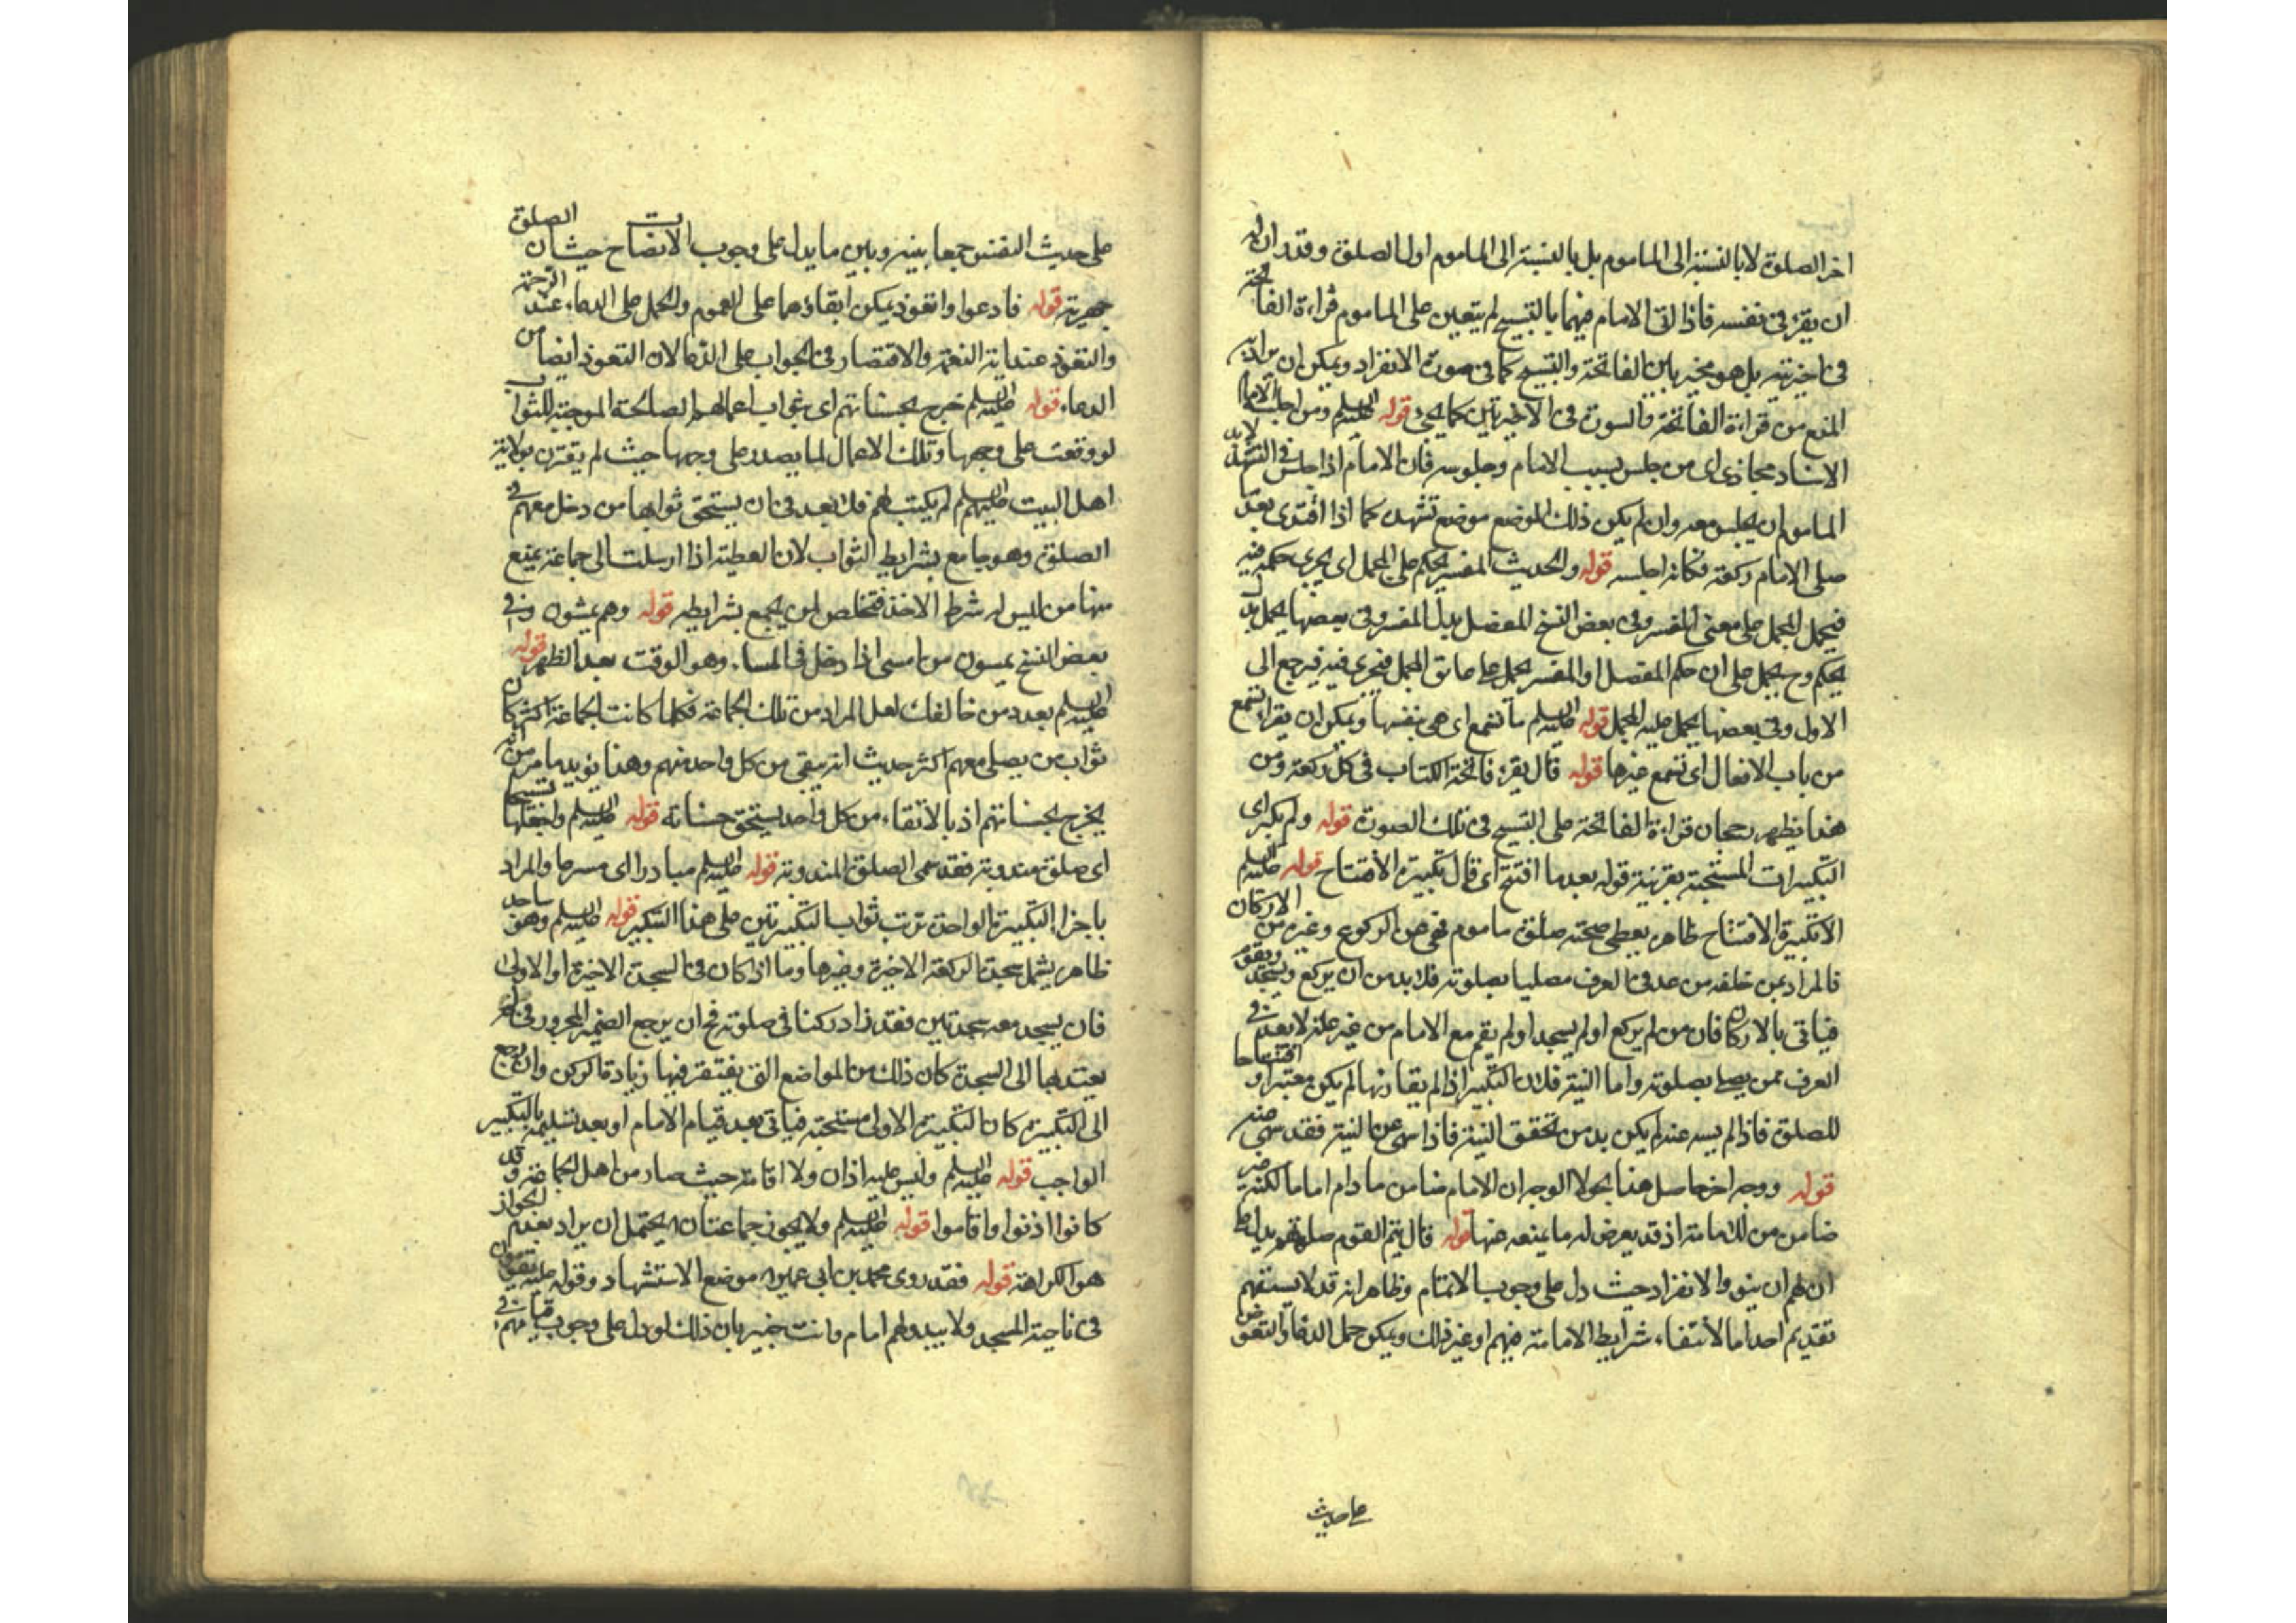 اخر الصلوة لا بالنسبة الى الماموم بل بالنسبة الى الماموم اول الصلوة وقد ان له
ان يقرء في نفسه فاذا اتى الامام فيهما بالتسبيح لم يتعين على الماموم قراءة الفاتحة
في اخيرتيه بل هو مخير بين الفاتحة والتسبيح كما في صورة الانفراد ويمكن ان يراد به
المنع من قراءة الفاتحة والسورة في الاخيرتين كما يجئ قوله عليه السلم ومن اجلسه الامام
الاسناد مجازي اى من جلس بسبب الامام وجلوسه فان الامام اذا جلس في التشهد لا بد
الماموم ان يجلس معه وان لم يكن ذلك الموضع موضع تشهده كما اذا اقتدى بعد
صلى الامام ركعة فكانه اجلسه قوله والحديث المفسر يحكم على المجمل اى يجرى حكمه فيه
فيحمل المجمل على معنى المفسر وفي بعض النسخ المفصل بدل المفسر وفي بعضها يحمل بدل
يحكم وح يحمل على ان حكم المفصل او المفسر يحمل على ما في المجمل فيجرى فيه فيرجع الى
الاول وفي بعضها يحمل عليه المجمل قوله عليه السلم ما تسمع اى هى بنفسها ويمكن ان يقرأ تسمع
من باب الافعال اى تسمع غيرها قوله قال يقرء فاتحة الكتاب في كل ركعة ومن
هذا يظهر رجحان قراءة الفاتحة على التسبيح في تلك الصورة قوله ولم يكبر اى
التكبيرات المستحبة بقرينة قوله بعد ما افتتح اى قال تكبيرة الافتتاح قوله عليه السلم
الا تكبيرة الافتتاح ظاهره يعطى صحة صلوة ماموم نقص الركوع وغيره من الاركان
فالمراد بمن خلفه من عد في العرف مصليا بصلوته فلا بد من ان يركع ويسجد ويقوم
فياتي بالاركان فان من لم يركع او لم يسجد او لم يقم مع الامام من غير علة لا يعد في
العرف ممن يصلى بصلوته واما النية فلان التكبير اذا لم يقارنها لم يكن معتبرا و افتتاحا
للصلوة فاذا لم يسه عنه لم يكن بد من تحقق النية فاذا سهى عن النية فقد سهى عنه
قوله ووجه اخر حاصل هذا الوجه ان الامام ضامن ما دام اماما لكنه غير
ضامن من الامامة اذ قد يعرض له ما يمنعه عنها قوله قال يتم القوم صلوتهم يدل على
ان لهم ان ينووا الانفراد حيث دل على وجوب الاتمام وظاهر انه قد لا يستقيم
تقديم احد اما لانتفاء شرايط الامامة فيهم او غير ذلك ويمكن حمل الدعاء والتعوذ
على حديث
على حديث النفس جمعا بينه وبين ما يدل على وجوب الانصات حيث ان الصلوة
جهرية قوله فادعوا وتعوذ يمكن ابقاؤهما على العموم والحمل على الدعاء عند اية الرحمة
والتعوذ عند اية النقمة والاقتصار في الجواب على الدعا لان التعوذ ايضا من
الدعاء قوله عليه السلم خرج بحسناتهم اى بثواب اعمالهم الصالحة الموجبة للثواب
لو وقعت على وجهها وتلك الاعمال لما يصدر على وجهها حيث لم يقترن بولاية
اهل البيت عليهم السلم لم يكتب لهم فلا بعد في ان يستحق ثوابها من دخل معهم في
الصلوة وهو جامع بشرايط الثواب لان العطية اذا ارسلت الى جماعة يمنع
منها من ليس له شرط الاخذ فتخلص لمن يجمع بشرايطه قوله وهم يمشون وفي
بعض النسخ يمسون من امسى اذا دخل في المساء وهو الوقت بعد الظهر قوله
عليه السلم بعدد من خالفك لعل المراد من تلك الجماعة فكلما كانت الجماعة اكثر كان
ثواب من يصلى معهم اكثر حديث انه يبقى من كل واحد منهم وهذا يؤيد ما مر من انه
يخرج بحسناتهم اذ بالانتفاء من كل واحد يستحق حسناته قوله عليه السلم واجعلها تسبيحا
اى صلوة مندوبة فقد سمى الصلوة المندوبة قوله عليه السلم مبادرا اى مسرعا والمراد
باجزاء التكبيرة الواحدة ترتب ثواب التكبيرتين على هذا التكبير قوله عليه السلم وهو ساجد
ظاهره يشمل سجدة الركعة الاخيرة وغيرها وما اذا كان في السجدة الاخيرة او الاولى
فان يسجد معه سجدتين فقد زاد ركنا في صلوته فح ان يرجع الضمير المجرور في لم
يعتد بها الى السجدة كان ذلك من المواضع التى يغتفر فيها زيادة الركن وان رجع
الى التكبيرة كان التكبيرة الاولى مستحبة فياتي بعد قيام الامام او بعد تسليمه بالتكبير
الواجب قوله عليه السلم وليس عليه اذان ولا اقامة حيث صار من اهل الجماعة وقد
كانوا اذنوا واقاموا قوله عليه السلم ولا يجوز جماعتان يحتمل ان يراد بعدم الجواز
هو الكراهة قوله فقد روى محمد بن ابى عمير موضع الاستشهاد وقوله عليه السلم يقومون
في ناحية المسجد ولا يبدو لهم امام وانت خبير بان ذلك لو دل على وجوب قيامهم في